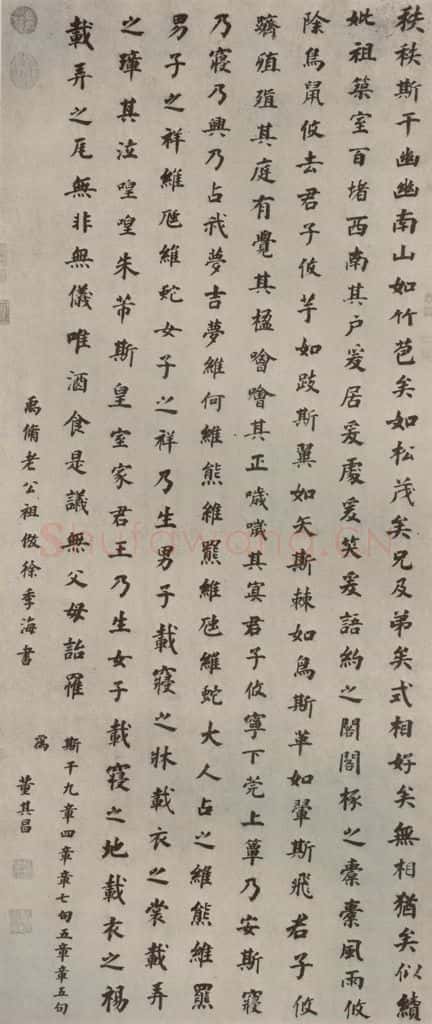 秩秩斯干幽幽南山如竹苞矣如松茂矣兄及弟矣式相好矣無相猶矣似續
妣祖築室百堵西南其戶爰居爰處爰笑爰語約之閣閣椓之橐橐風雨攸
除鳥鼠攸去君子攸芋如跂斯翼如矢斯棘如鳥斯革如翬斯飛君子攸
躋殖殖其庭有覺其楹噲噲其正噦噦其冥君子攸寧下莞上簟乃安斯寢
乃寢乃興乃占我夢吉夢維何維熊維羆維虺維蛇大人占之維熊維羆
男子之祥維虺維蛇女子之祥乃生男子載寢之牀載衣之裳載弄
之璋其泣喤喤朱芾斯皇室家君王乃生女子載寢之地載衣之裼
載弄之瓦無非無儀唯酒食是議無父母詒罹
斯干九章四章章七句五章章五句
爲
禹脩老公祖倣徐季海書
董其昌
Shufawang.CN